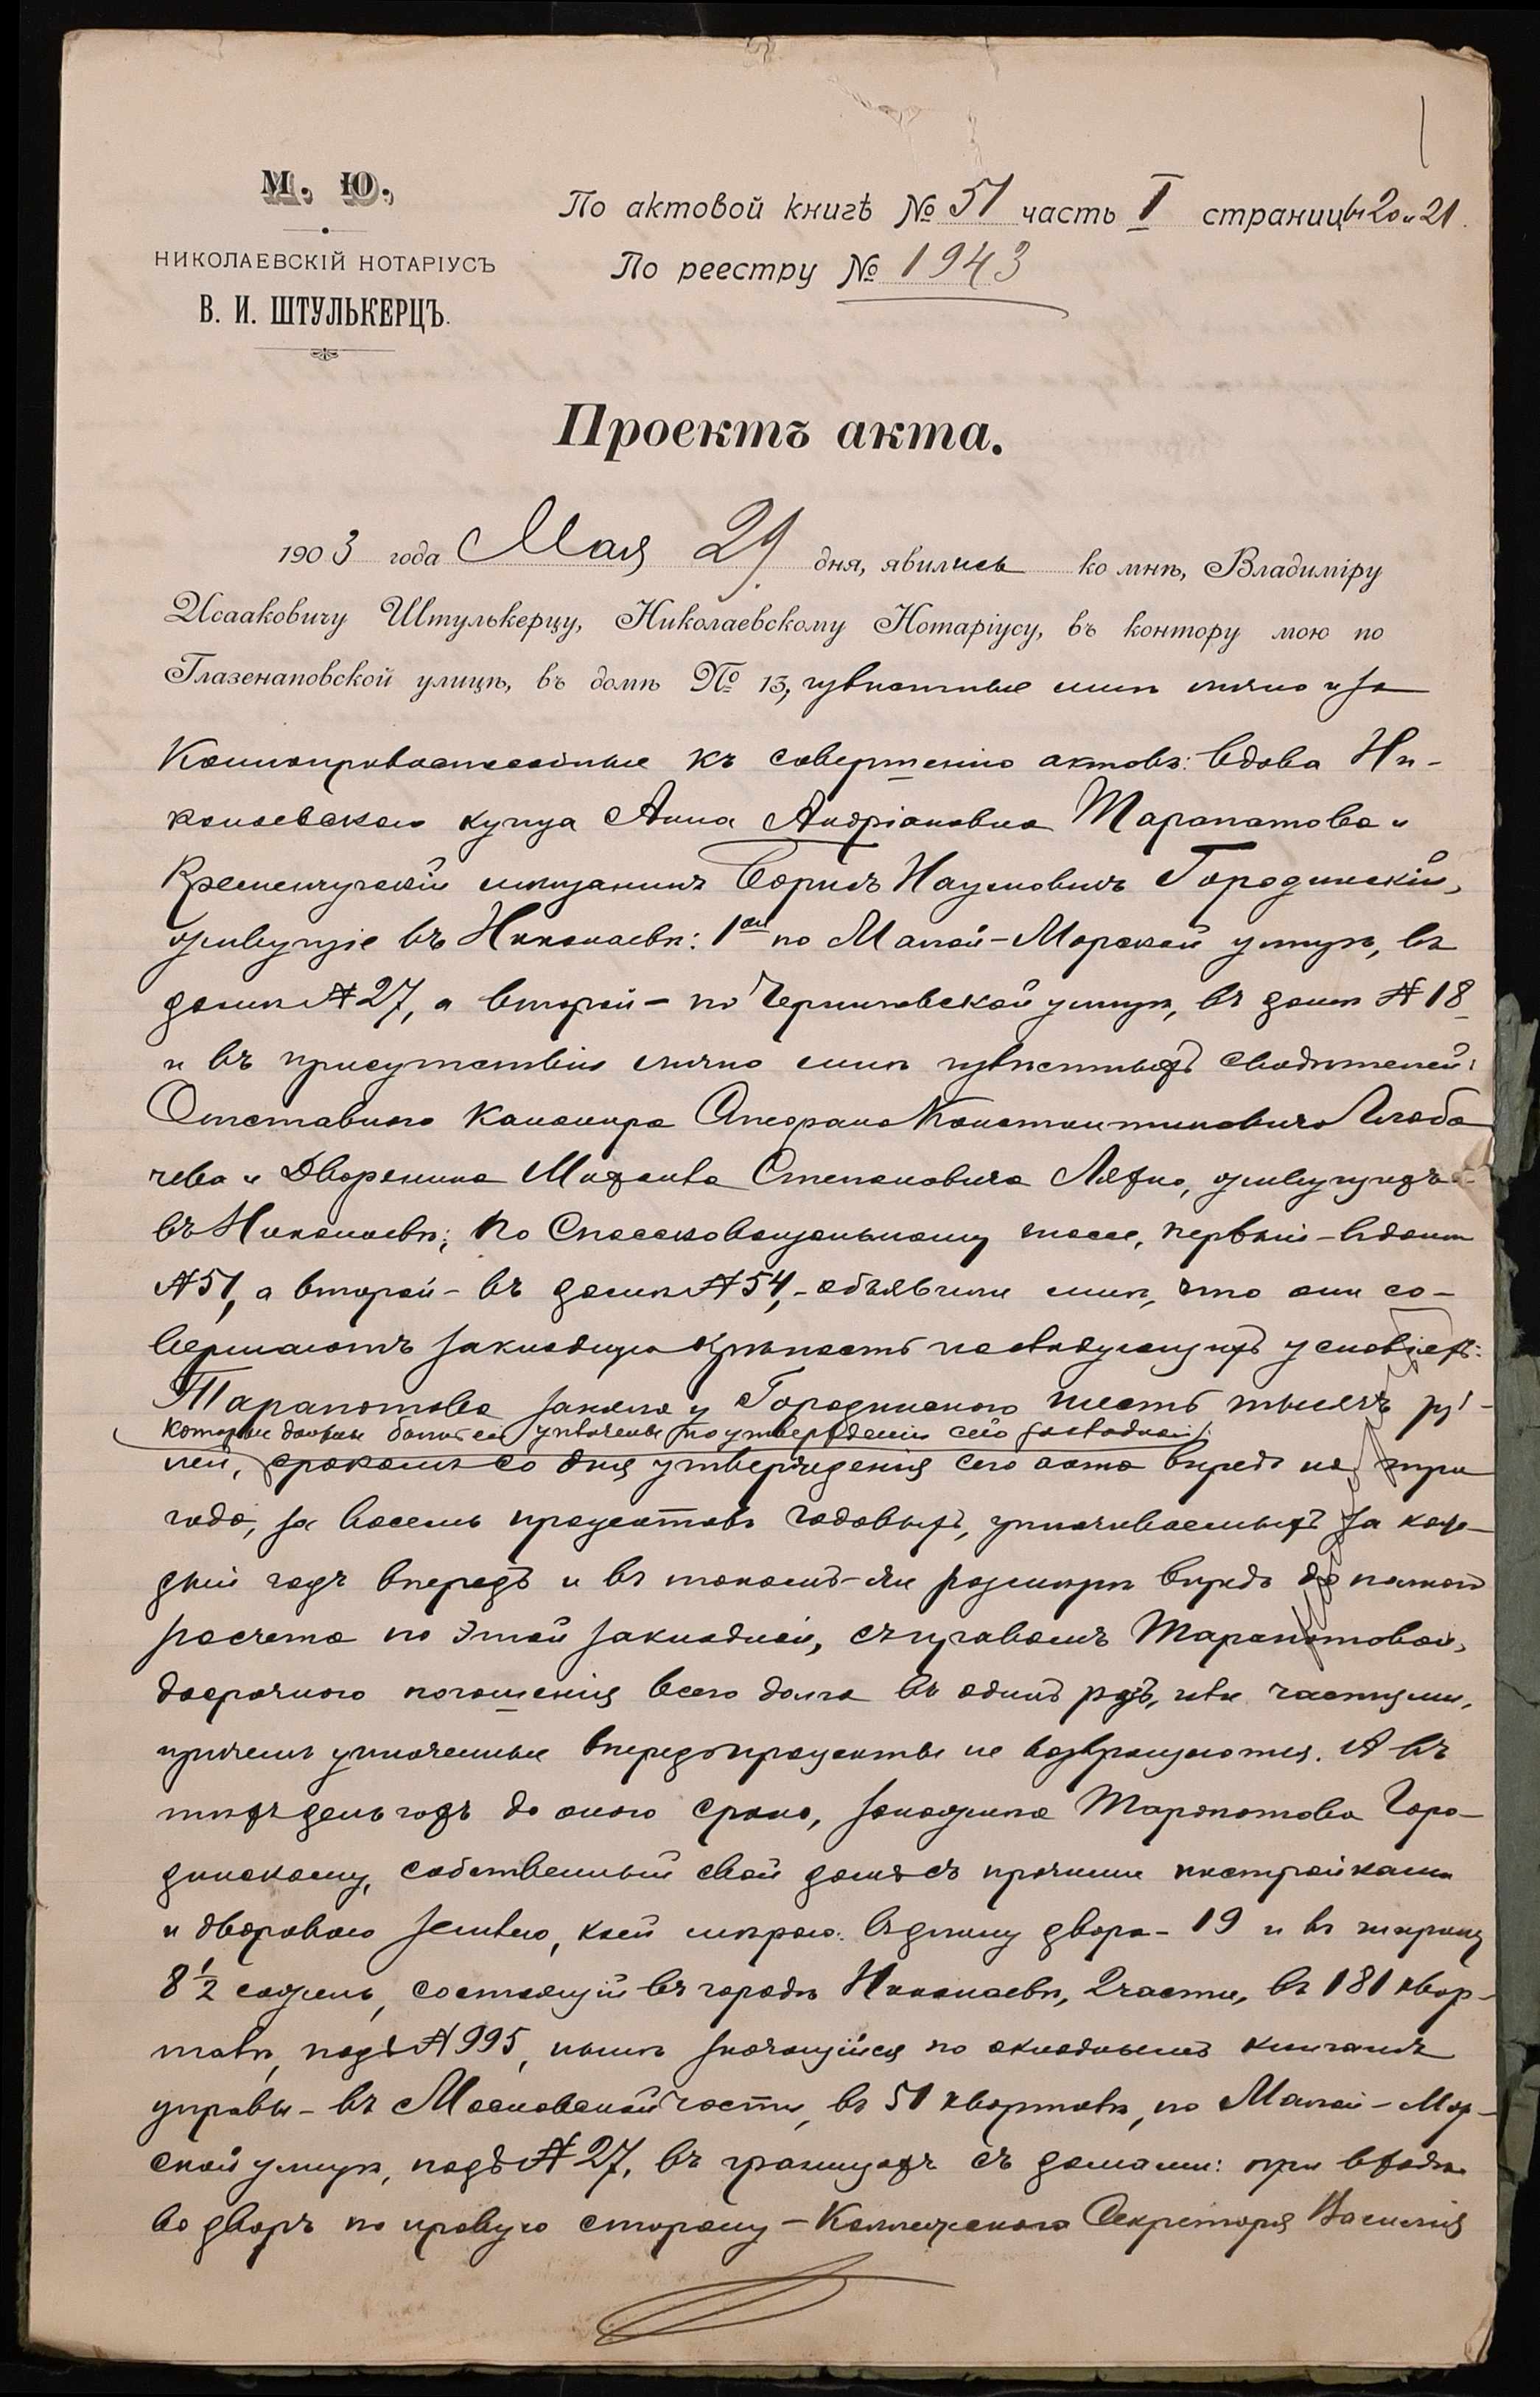 М. Ю.
НИКОЛАЕВСКІЙ НОТАРІУСЪ
В. И. ШТУЛЬКЕРЦЪ.
По актовой книгѣ № 51 часть I страницы 20 и 21.
По реестру № 1943
Проектъ акта.
1903 года Мая 29 дня, явились ко мнѣ, Владиміру
Исааковичу Штулькерцу, Николаевскому Нотаріусу, въ контору мою по
Глазенаповской улицѣ, въ домѣ № 13, извѣстные мнѣ лично и за
конноправоспособные къ совершенію актовъ: вдова Ни-
колаевскаго купца Анна Андріановна Тарапатова и
Кременчугскій мѣщанинъ Борисъ Наумовичъ Городинскій,
живущіе въ Николаевѣ: 1ая по Малой-Морской улицѣ, въ
домѣ № 27, а второй - по Черниговской улицѣ, въ домѣ № 18
и въ присутствіи лично мнѣ извѣстныхъ свидѣтелей:
Отставного канонира Константиновича
чева и Дворянина Михаила Степановича живущихъ
въ Николаевѣ, по шоссе, первый - въ домѣ
№ 51, а второй - въ домѣ № 54, - объявили мнѣ, что они со-
вершаютъ закладную крѣпость на слѣдующихъ условіяхъ:
Тарапатова заняла у Городинскаго шесть тысячъ руб-
которые должны быть ей уплачены по утвержденіи сей закладной,
лей, срокомъ со дня утвержденія сего акта впредь на три
года, за восемь процентовъ годовыхъ, уплачиваемыхъ за каж-
дый годъ впередъ и въ такомъ-же размѣрѣ впредь до полной
расчета по этой закладной, съ правомъ Тарапатовой,
досрочнаго погашенія всего долга въ одинъ разъ, или частями,
причемъ уплоченные впередъ проценты не возвращаются. А въ
тѣхъ деньгахъ до онаго срока, заложила Тарапатова Горо-
динскому, собственный свой домъ съ прочими постройками
и дворовою землею, коей мѣрою: въ длину двора - 19 и въ ширину
8 1/2 сажень, состоящій въ городѣ Николаевѣ, 2 части, въ 181 квар-
талѣ, подъ № 995, нынѣ значащійся по окладнымъ книгамъ
управы - въ Московской части, въ 51 кварталѣ, по Малой-Мор-
ской улицѣ, подъ № 27, въ границахъ съ домами: при входѣ
во дворъ по правую сторону - Коллежскаго Секретаря Василія